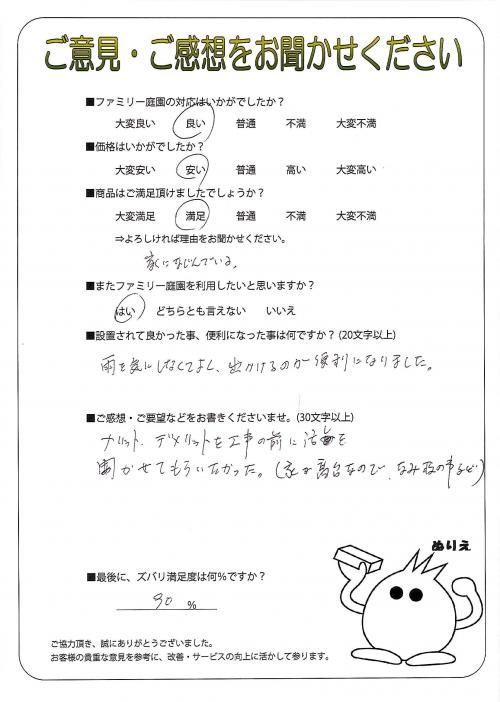 ご意見・ご感想をお聞かせください
■ファミリー庭園の対応はいかがでしたか？
大変良い 良い 普通 不満 大変不満
■価格はいかがでしたか？
大変安い 安い 普通 高い 大変高い
■商品はご満足頂けましたでしょうか？
大変満足 満足 普通 不満 大変不満
⇒よろしければ理由をお聞かせください。
家になじんでいる。
■またファミリー庭園を利用したいと思いますか？
はい どちらとも言えない いいえ
■設置されて良かった事、便利になった事は何ですか？(20文字以上)
雨を気にしなくてよし、出かけるのが便利になりました。
■ご感想・ご要望などをお書きくださいませ。(30文字以上)
メリット、デメリットを工事の前に
聞かせてもらいたかった。(家が高台なので、なみ板の事など)
ぬりえ
■最後に、ズバリ満足度は何％ですか？
90 %
ご協力頂き、誠にありがとうございました。
お客様の貴重な意見を参考に、改善・サービスの向上に活かして参ります。